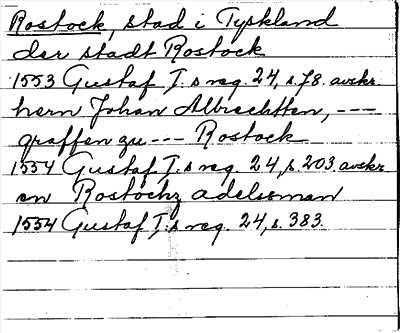 Rostock, stad i Tyskland
der stadt Rostock
1553 Gustaf I.s reg. 24, s. 78. avskr.
hern Johan Albrechtten, ---
graffen zu --- Rostock
1554 Gustaf I.s reg. 24, s. 203 avskr
en Rostochz adelssman
1554 Gustaf I.s reg. 24, s. 383.